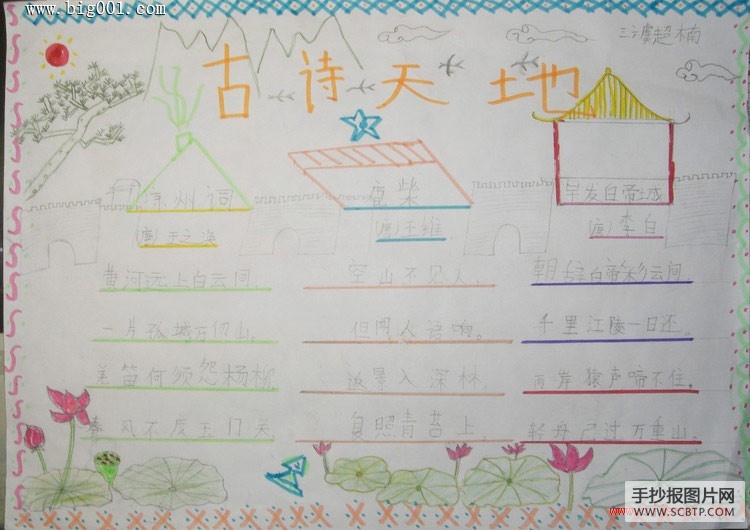 www.big001.com
古诗天地
超楠
凉州词
(唐)王之涣
黄河远上白云间,
一片孤城万仞山。
羌笛何须怨杨柳,
春风不度玉门关
鹿柴
(唐)王维
空山不见人,
但闻人语响。
返景入深林,
复照青苔上。
早发白帝城
(唐)李白
朝辞白帝彩云间,
千里江陵一日还。
两岸猿声啼不住,
轻舟已过万重山。
手抄报图片网
WWW.SCBTP.COM